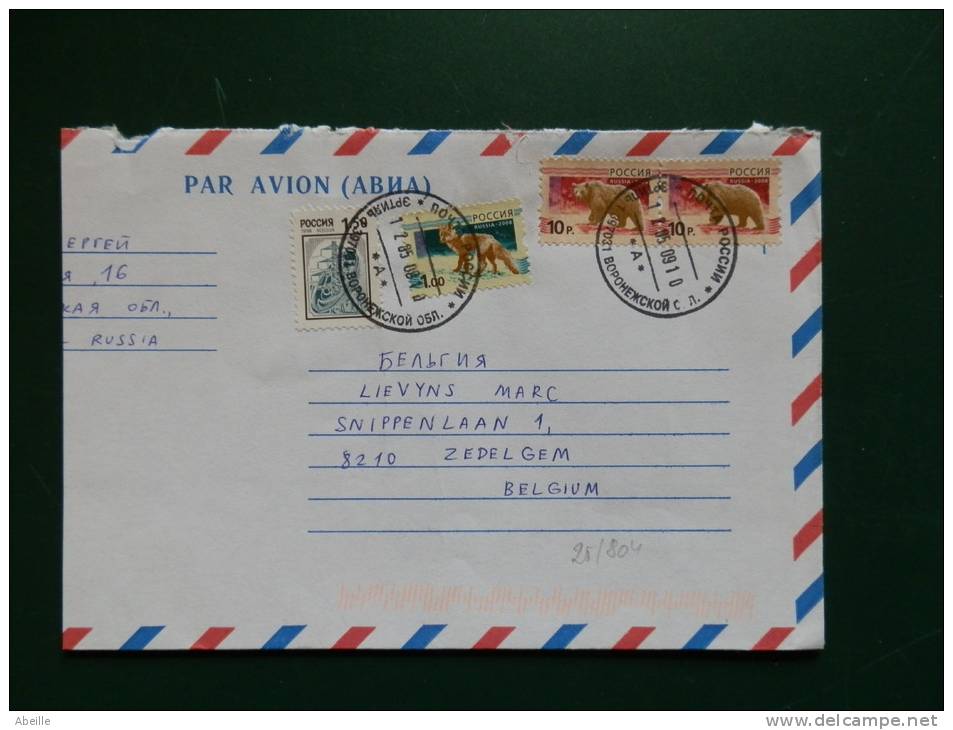 PAR AVION (АВИА)
РОССИЯ
РОССИЯ
RUSSIA · 2008
1.00
РОССИЯ
RUSSIA · 2008
10 Р.
РОССИЯ
RUSSIA · 2008
10 Р.
ПОЧТА РОССИИ * ЭРТИЛЬ
397031 ВОРОНЕЖСКОЙ ОБЛ. *
* А *
ПОЧТА РОССИИ * ЭРТИЛЬ
397031 ВОРОНЕЖСКОЙ
* А *
ЕРГЕЙ
Я , 16
КАЯ ОБЛ.,
RUSSIA
БЕЛЬГИЯ
LIEVYNS MARC
SNIPPENLAAN 1,
8210 ZEDELGEM
BELGIUM
25/804
Abeille
http://www.delcampe.net